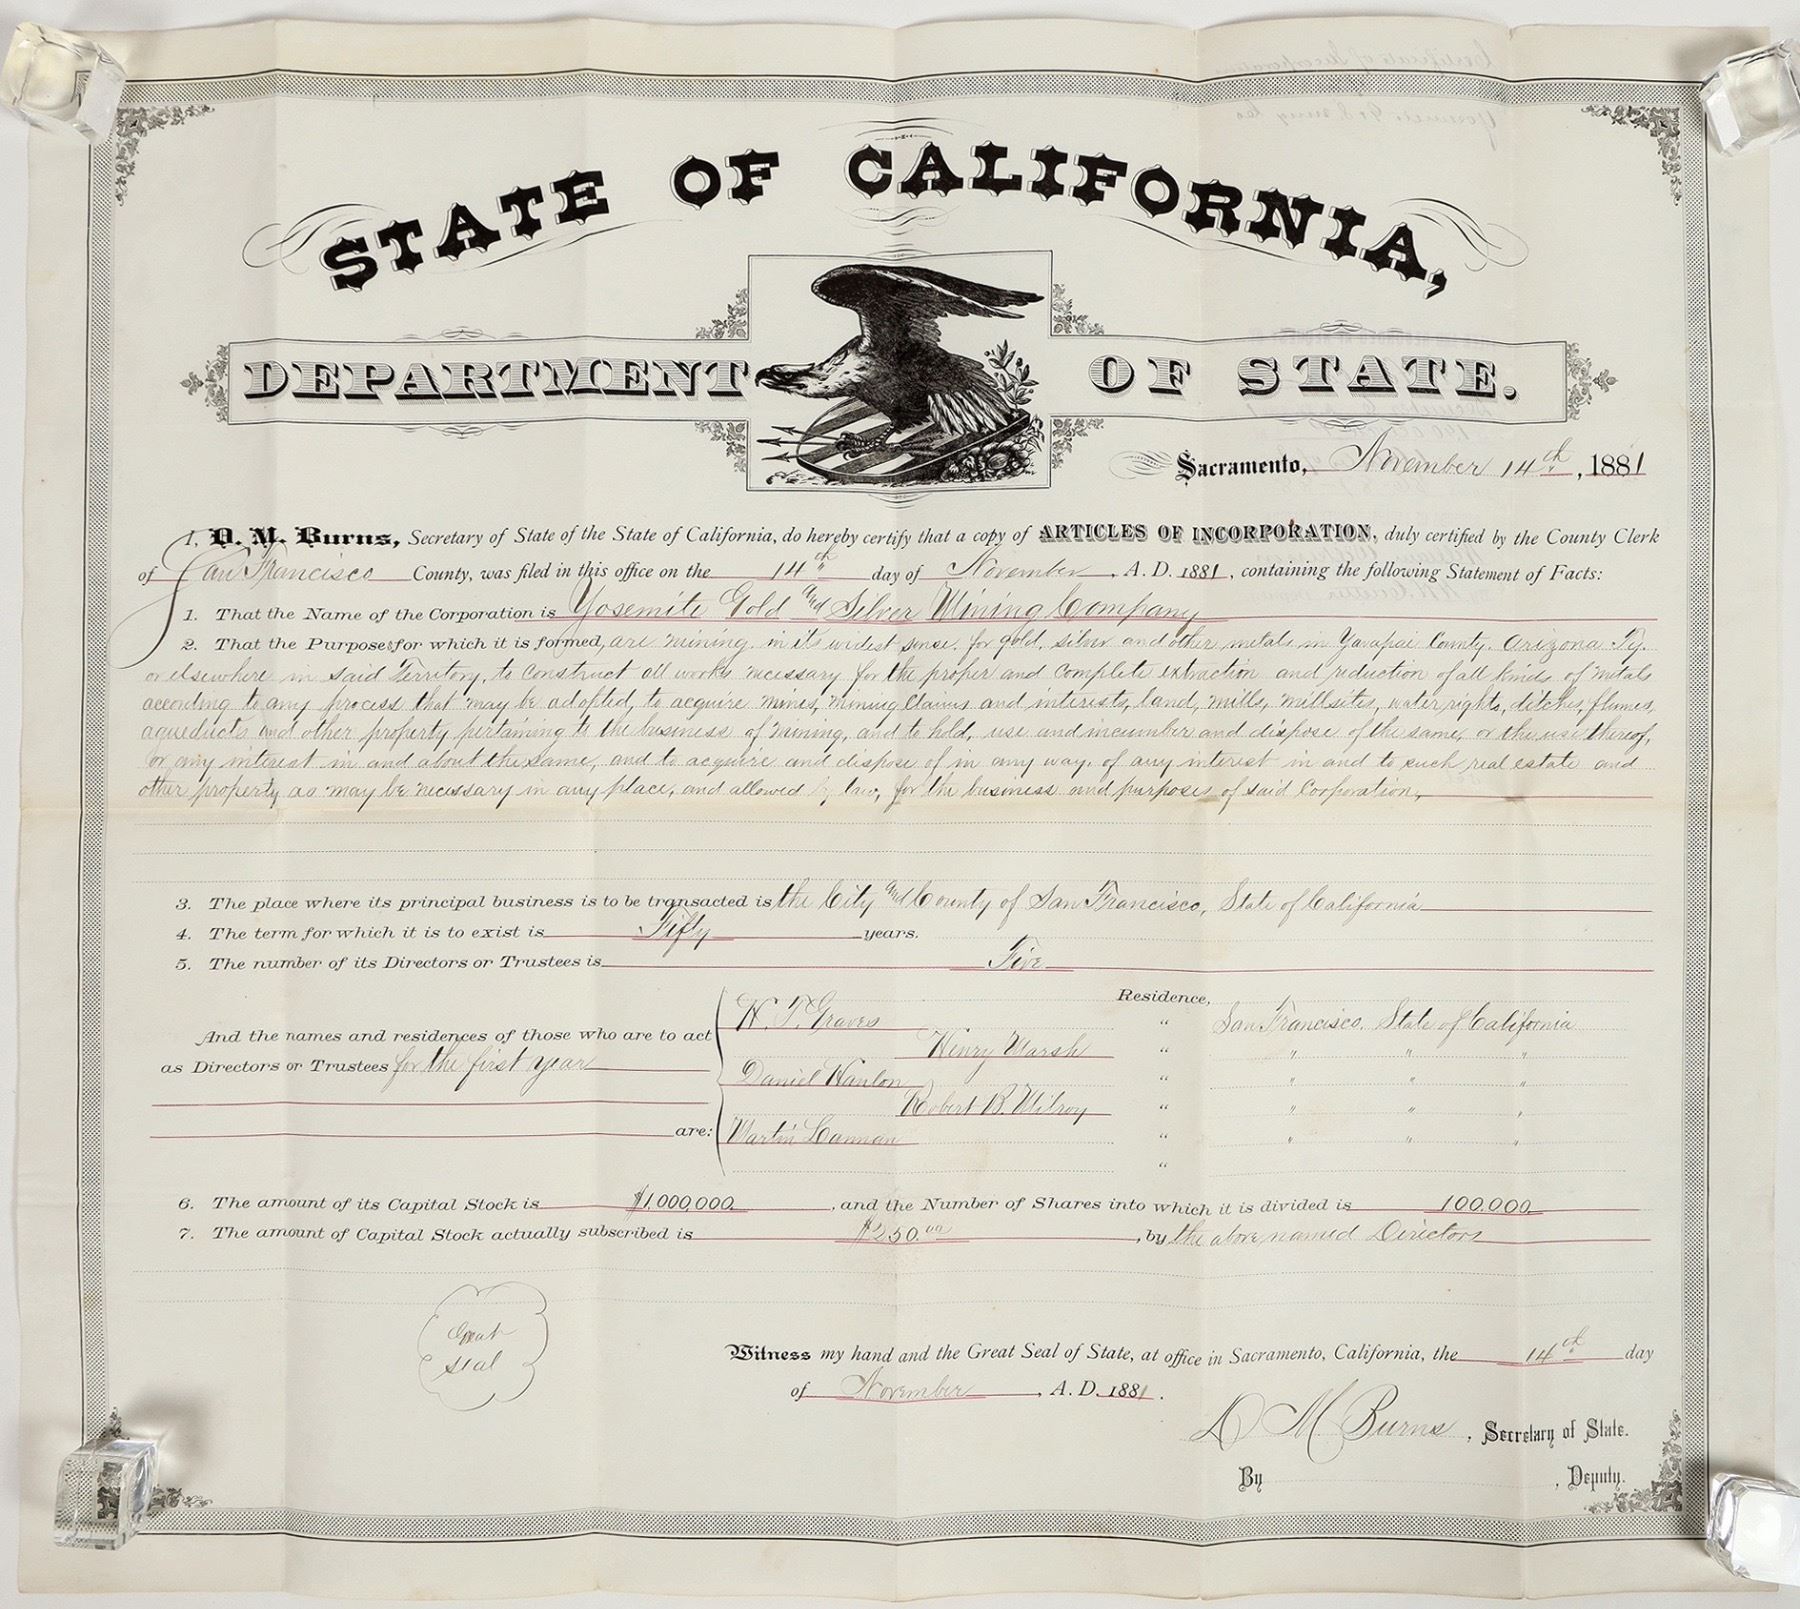 STATE OF CALIFORNIA,
DEPARTMENT OF STATE.
Sacramento, November 14th, 1881
I, D. M. Burns, Secretary of State of the State of California, do hereby certify that a copy of ARTICLES OF INCORPORATION, duly certified by the County Clerk
of San Francisco County, was filed in this office on the 14th day of November, A. D. 1881, containing the following Statement of Facts:
1. That the Name of the Corporation is Yosemite Gold and Silver Mining Company
2. That the Purposes for which it is formed, are mining, in its widest sense, for gold, silver and other metals in Yavapai County, Arizona Ty.
or elsewhere in said Territory, to construct all works necessary for the proper and complete extraction and reduction of all kinds of metals
according to any process that may be adopted, to acquire mines, mining claims and interests, land, mills, millsites, water rights, ditches, flumes,
aqueducts and other property pertaining to the business of mining, and to hold, use and incumber and dispose of the same, or the use thereof,
or any interest in and about the same, and to acquire and dispose of in any way, of any interest in and to such real estate and
other property as may be necessary in any place, and allowed by law, for the business and purposes of said Corporation,
3. The place where its principal business is to be transacted is the City and County of San Francisco, State of California
4. The term for which it is to exist is Fifty years.
5. The number of its Directors or Trustees is Five
Residence,
And the names and residences of those who are to act
as Directors or Trustees for the first year
are:
H. T. Graves " San Francisco, State of California
Henry Marsh " " " "
Daniel Hanlon " " " "
Robert B. Milroy " " " "
Martin Lannan " " " "
"
6. The amount of its Capital Stock is $1,000,000, and the Number of Shares into which it is divided is 100,000
7. The amount of Capital Stock actually subscribed is $250.00, by the above named Directors
Great
seal
Witness my hand and the Great Seal of State, at office in Sacramento, California, the 14th day
of November, A. D. 1881.
D M Burns, Secretary of State.
By , Deputy.